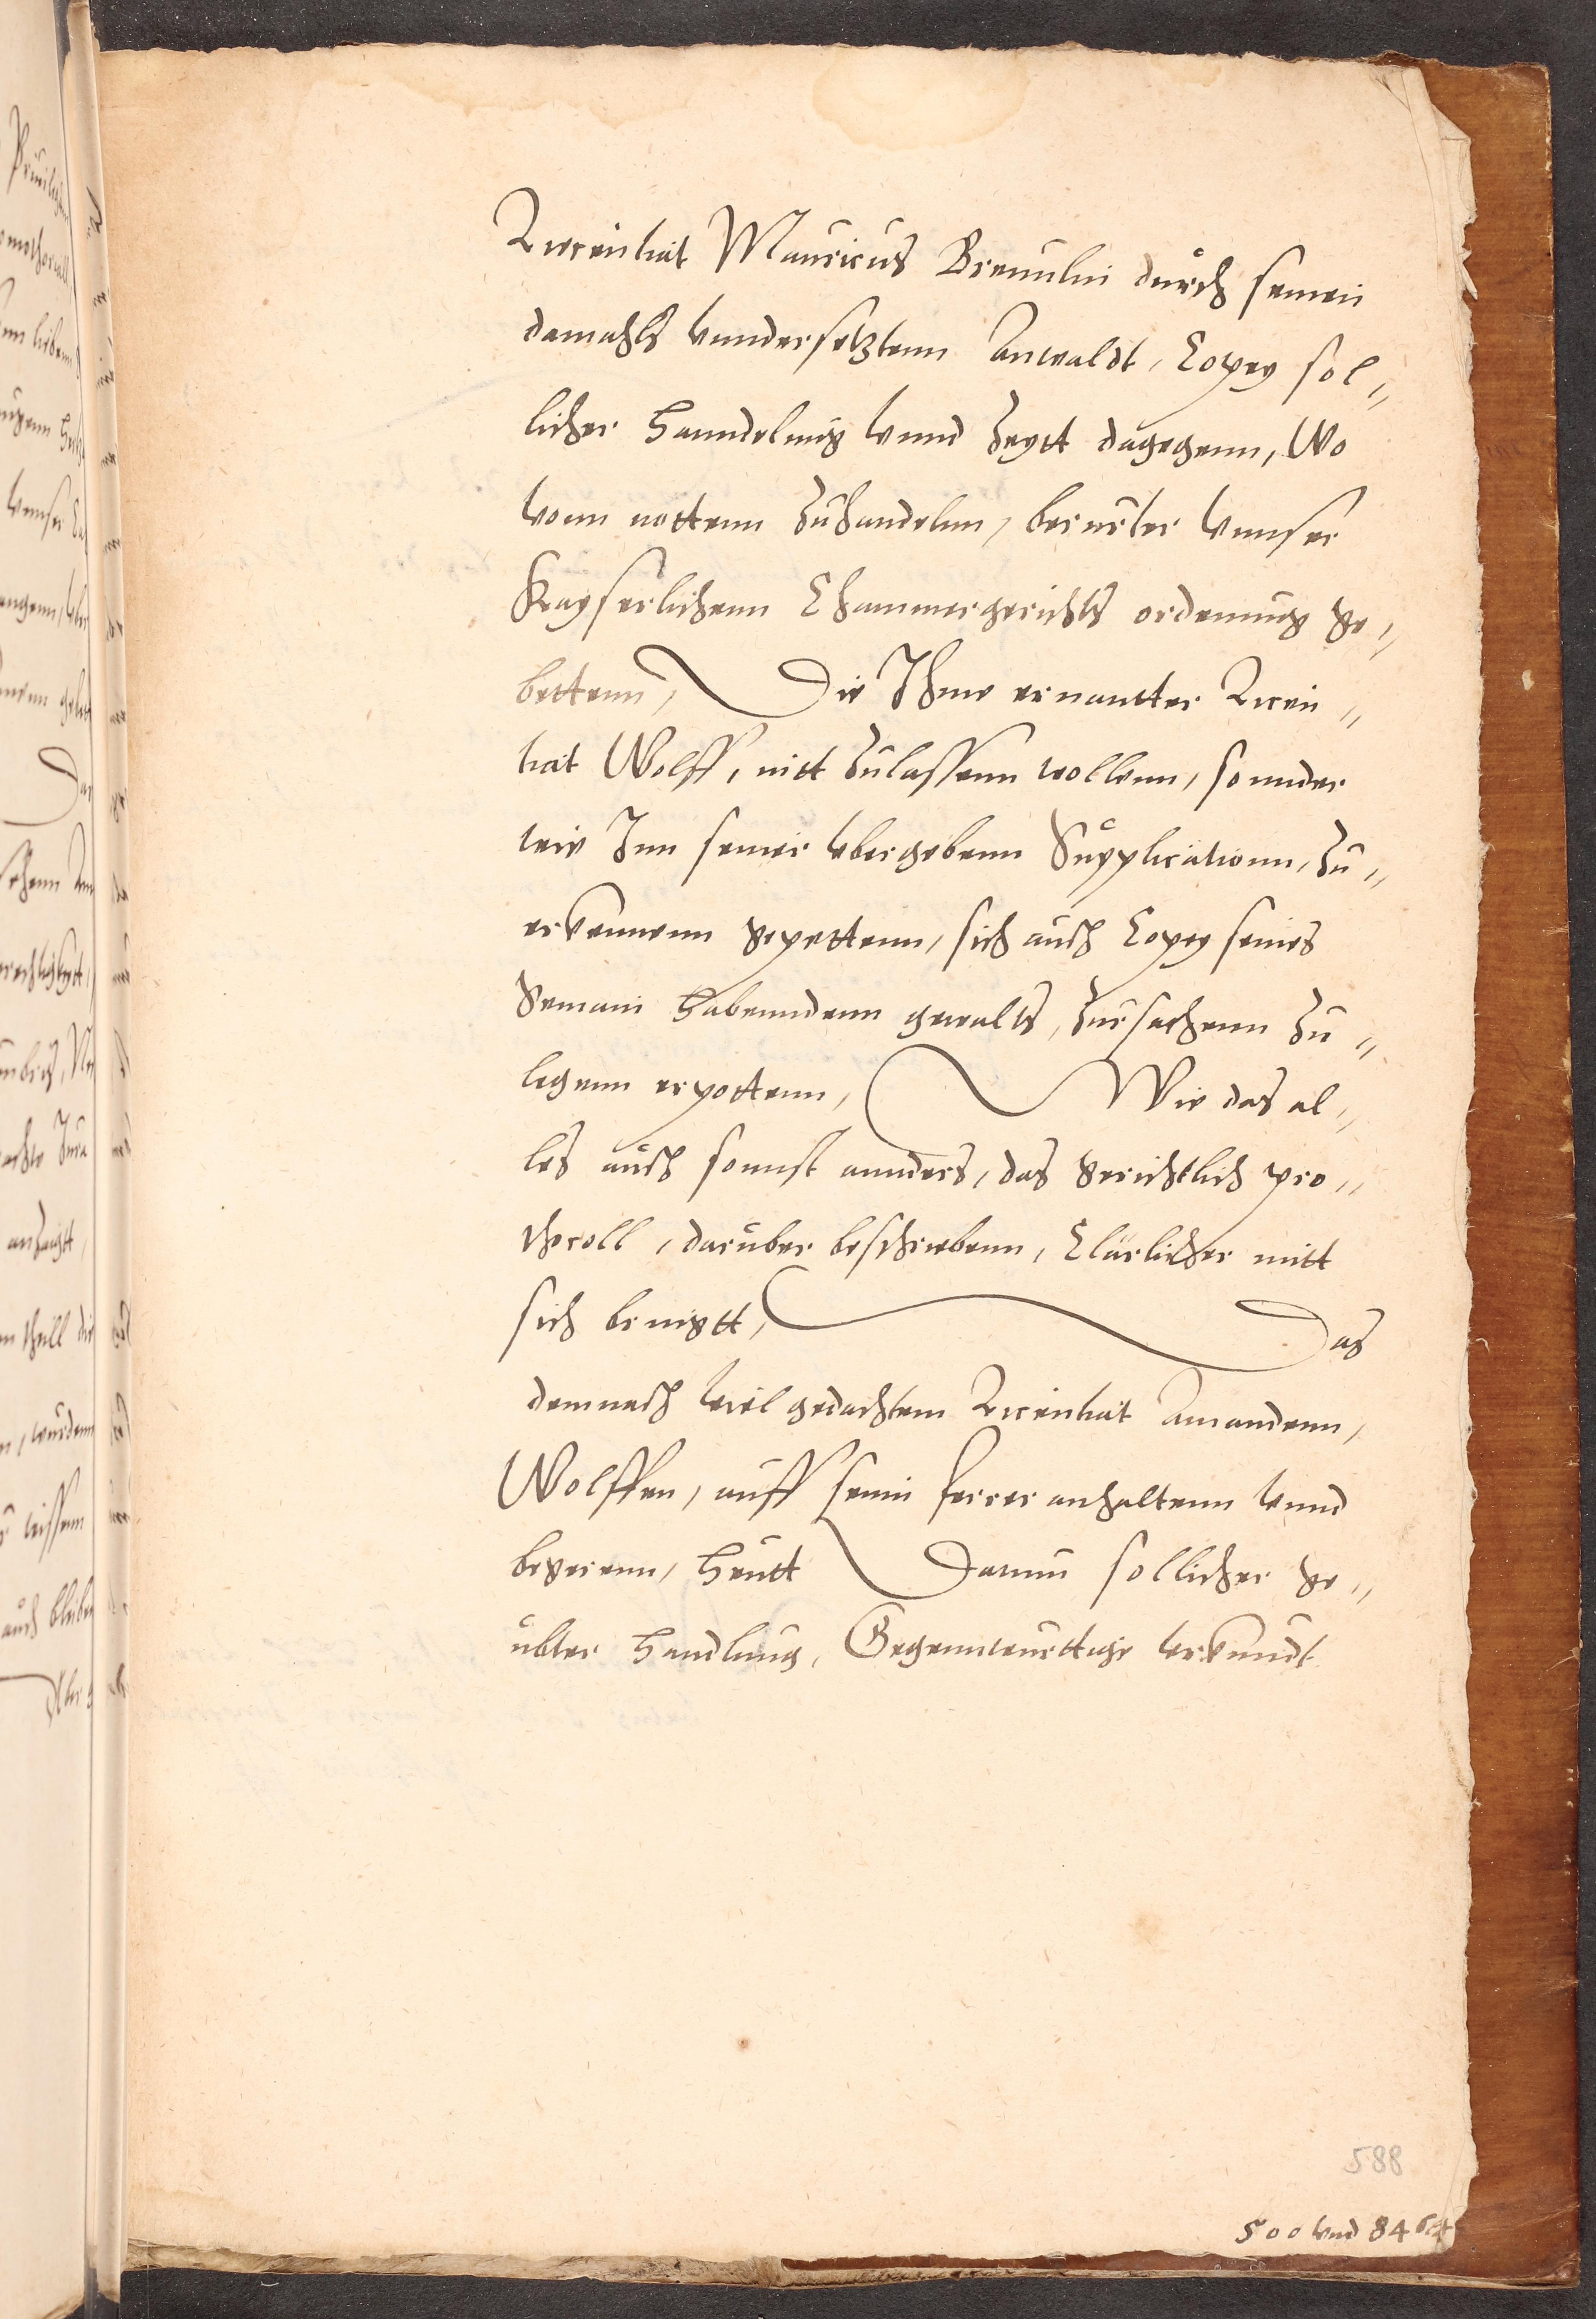 Licenciat Mauricius Breunlin durch seinen
damahls unndersetztenn Anwaldt, Copey sol„
licher Hanndelung vnnd Zeytt dagegenn, Wo
vonn nottenn zuhandelnn, berurter vnnser
Kayserlichenn Chammergerichts ordenung ge„
bettenn, Die Ihme ernantter Licen„
tiat Wolff, nitt zulassenn wollenn, sonnder
wie Inn seiner vbergebenn Supplicationn, zu„
erkennenn gepettenn, sich auch Copey seines
gemain habenndenn gewalts, zursachenn zu„
legenn erpottenn, Wie das al„
les auch sonnst annders, das gerichtlich pro„
thocoll, daruber beschriebenn, Clarlicher mitt
sich bringtt, Das
demnach weil gedachtem Licentiat Amandenn,
Wolffen, auff sein ferrer anhaltenn vnnd
begerenn, heutt Datum sollicher ge„
übter Handlung, Gegennwurttige verkundt
588
500 vnd 84